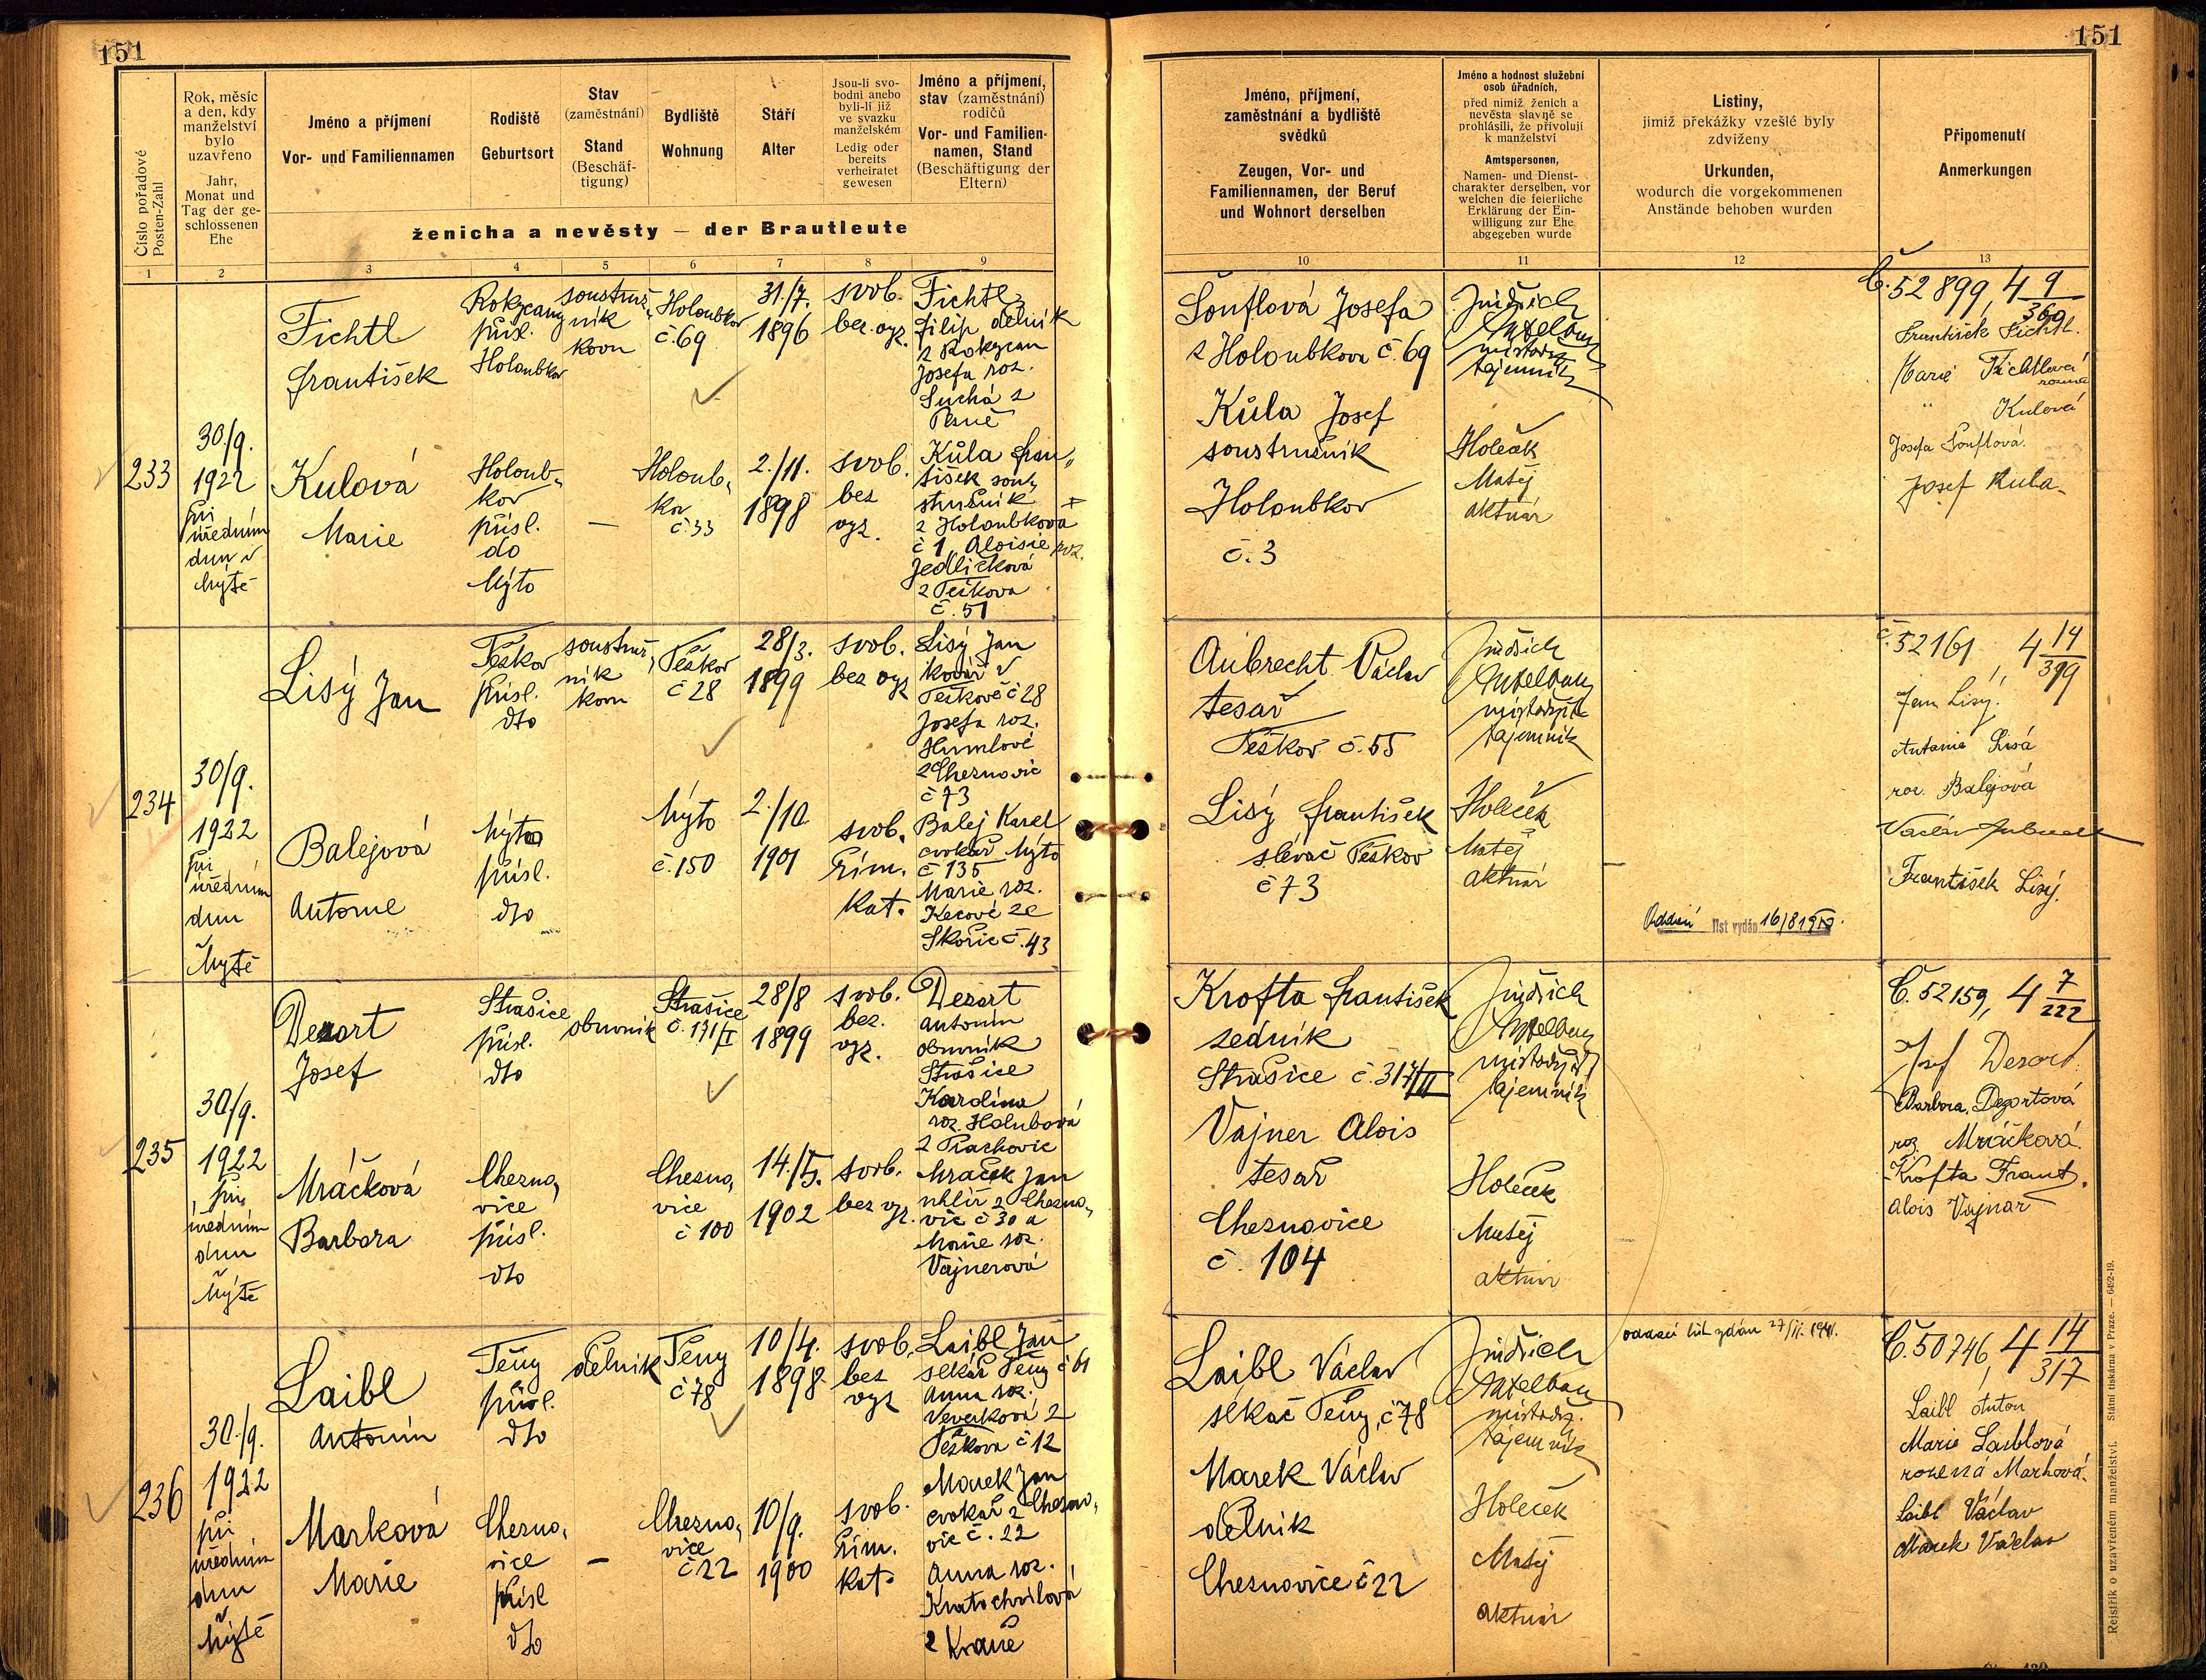 151
151
Číslo pořadové
Posten-Zahl
Rok, měsíc
a den, kdy
manželství
bylo
uzavřeno
Jahr,
Monat und
Tag der ge-
schlossenen
Ehe
Jméno a příjmení
Vor- und Familiennamen
Rodiště
Geburtsort
Stav
(zaměstnání)
Stand
(Beschäf-
tigung)
Bydliště
Wohnung
Stáří
Alter
Jsou-li svo-
bodni anebo
byli-li již
ve svazku
manželském
Ledig oder
bereits
verheiratet
gewesen
Jméno a příjmení,
stav (zaměstnání)
rodičů
Vor- und Familien-
namen, Stand
(Beschäftigung der
Eltern)
ženicha a nevěsty — der Brautleute
Jméno, příjmení,
zaměstnání a bydliště
svědků
Zeugen, Vor- und
Familiennamen, der Beruf
und Wohnort derselben
Jméno a hodnost služební
osob úřadních,
před nimiž ženich a
nevěsta slavně se
prohlásili, že přivolují
k manželství
Amtspersonen,
Namen- und Dienst-
charakter derselben, vor
welchen die feierliche
Erklärung der Ein-
willigung zur Ehe
abgegeben wurde
Listiny,
jimiž překážky vzešlé byly
zdviženy
Urkunden,
wodurch die vorgekommenen
Anstände behoben wurden
Připomenutí
Anmerkungen
1 2 3 4 5 6 7 8 9 10 11 12 13
233
30/9.
1922
při
úředním
dnu v
Mýtě
Fichtl
František
Rokycany
přísl.
Holoubkov
soustruž-
ník
kovu
Holoubkov
č. 69
31./7.
1896
svob.
bez. vyz.
Fichtl
Filip dělník
z Rokycan
Josefa roz.
Suchá z
Plzně
Kulová
Marie
Holoub-
kov
přísl.
do
Mýto
—
Holoub-
kov
č 33
2./11.
1898
svob.
bez
vyz.
Kůla Fran-
tišek sou-
stružník
z Holoubkova
č 1 Aloisie roz.
Jedličková
z Těškova
č. 51
Šouflová Josefa
z Holoubkova č. 69
Kůla Josef
soustružník
Holoubkov
č. 3
Jindřich
tajemník
Holeček
Matěj
aktuár
Č. 52899, 4 9/360
František Fichtl.
Marie Fichtlová
rozená
" Kulová
Josefa Šouflová.
Josef Kula
234
30/9.
1922
při
úředním
dnu
Mýtě
Lisý Jan
Těškov
přísl.
dto
soustruž-
ník
kovu
Těškov
č 28
28/3.
1899
svob.
bez vyz
Lisý Jan
kovář v
Těškově č 28
Josefa roz.
Humlové
z Cheznovic
č 73
Balejová
Antonie
Mýto
přísl.
dto
Mýto
č. 150
2./10
1901
svob.
řím.
kat.
Balej Karel
cvokař Mýto
č 135
Marie roz.
Kecové ze
Skořic č. 43
Aubrecht Václav
tesař
Těškov č. 55
Lisý František
slévač Těškov
č 73
Jindřich
tajemník
Holeček
Matěj
aktuár
Oddací list vydán
č. 52161, 4 14/399
Jan Lisý.
Antonie Lisá
roz. Balejová
Václav Aubrecht
František Lisý.
235
30/9.
1922
při
úředním
dnu
Mýtě
Dezort
Josef
Strašice
přísl.
dto
obuvník
Strašice
č. 171/I
28/8
1899
svob.
bez.
vyz.
Dezort
Antonín
obuvník
Strašice
Karolína
roz. Holubová
Mráčková
Barbora
Chezno-
vice
přísl.
dto
Chezno-
vice
č 100
14./5.
1902
svob.
bez vyz.
Mráček Jan
uhlíř z Chezno-
vic č 30 a
Marie roz.
Vajnerová
Krofta František
Strašice č. 317/II
Vajner Alois
tesař
Cheznovice
č. 104
Jindřich
tajemník
Holeček
Matěj
aktuár
Č. 52159, 4 7/222
Josef Dezort
Barbora Dezortová
roz Mráčková.
Krofta Frant.
Alois Vajnar
236
30./9.
1922
při
úředním
dnu
Mýtě
Laibl
Antonín
Těny
přísl.
dto
dělník
Těny
č 78
10/4.
1898
svob.
bez
vyz
Laibl Jan
sekáč Těny č 61
Anna roz.
Veverková z
Těškova č 12
Marková
Marie
Chezno-
vice
přísl
dto
—
Chezno-
vice
č 22
10/9.
1900
svob.
řím.
kat.
Marek Jan
cvokař z Chezno-
vic č. 22
Anna roz.
Kratochvílová
Laibl Václav
sekáč Těny, č 78
Marek Václav
dělník
Cheznovice č 22
Jindřich
tajemník
Holeček
Matěj
aktuár
oddací list vydán 27/II. 1941.
Č. 50746, 4 14/317
Laibl Anton
Marie Laiblová
rozená Marková.
Laibl Václav
Marek Václav
Rejstřík o uzavřeném manželství. Státní tiskárna v Praze. — 6492-19.